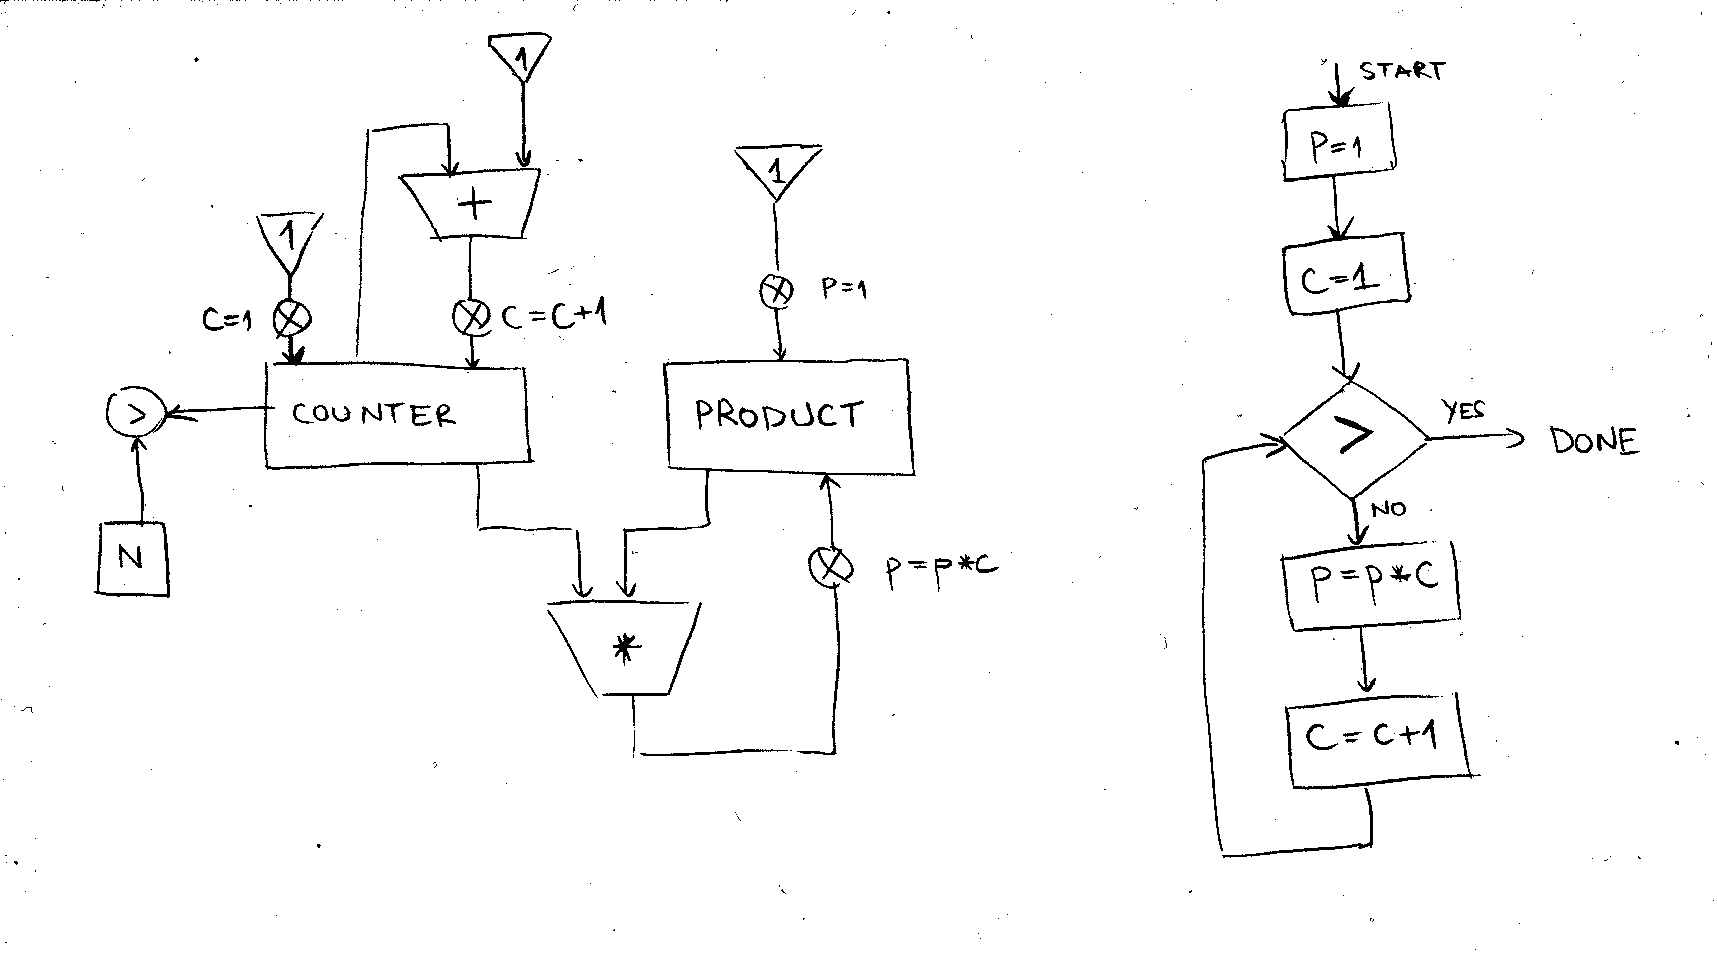 1
+
1
C=1
C=C+1
>
COUNTER
N
1
P=1
PRODUCT
*
P=P*C
START
P=1
C=1
>
YES
DONE
NO
P=P*C
C=C+1